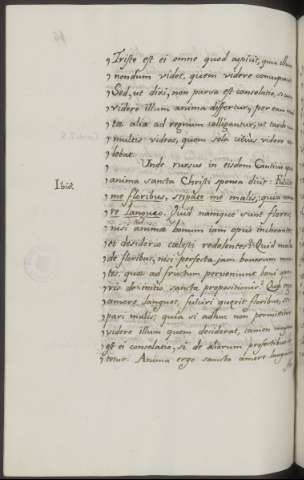 Triste est ei omne quod aspicit, quia illum
nondum videt, quem videre concupiscit.
Sed, ut dixi, non parva est consolatio, si cum
videre illum anima differtur, per eam
alia ad regnum colligantur, ut tarde
multis videat, quem sola citius videre
lebat.
Unde rursus in eisdem Canticis
anima sancta Christi sponsa dicit: Fulcite
Ibid.
me floribus, stipate me malis, quia amo
re langueo. Quid namque sunt flores,
nisi animæ bonum iam opus inchoantes,
et desiderio cælesti redolentes? Quid mala
de floribus, nisi perfectæ iam bonorum men
tes, quæ ad fructum perveniunt boni ope
ris de initio sanctæ propositionis? Quæ ergo
amore languet, fulciri quærit floribus, sti
pari malis; quia si adhuc non permittitur
videre illum quem desiderat, tamen magna
est ei consolatio, si de aliorum profectibus
tetur. Anima ergo sancto amore languida